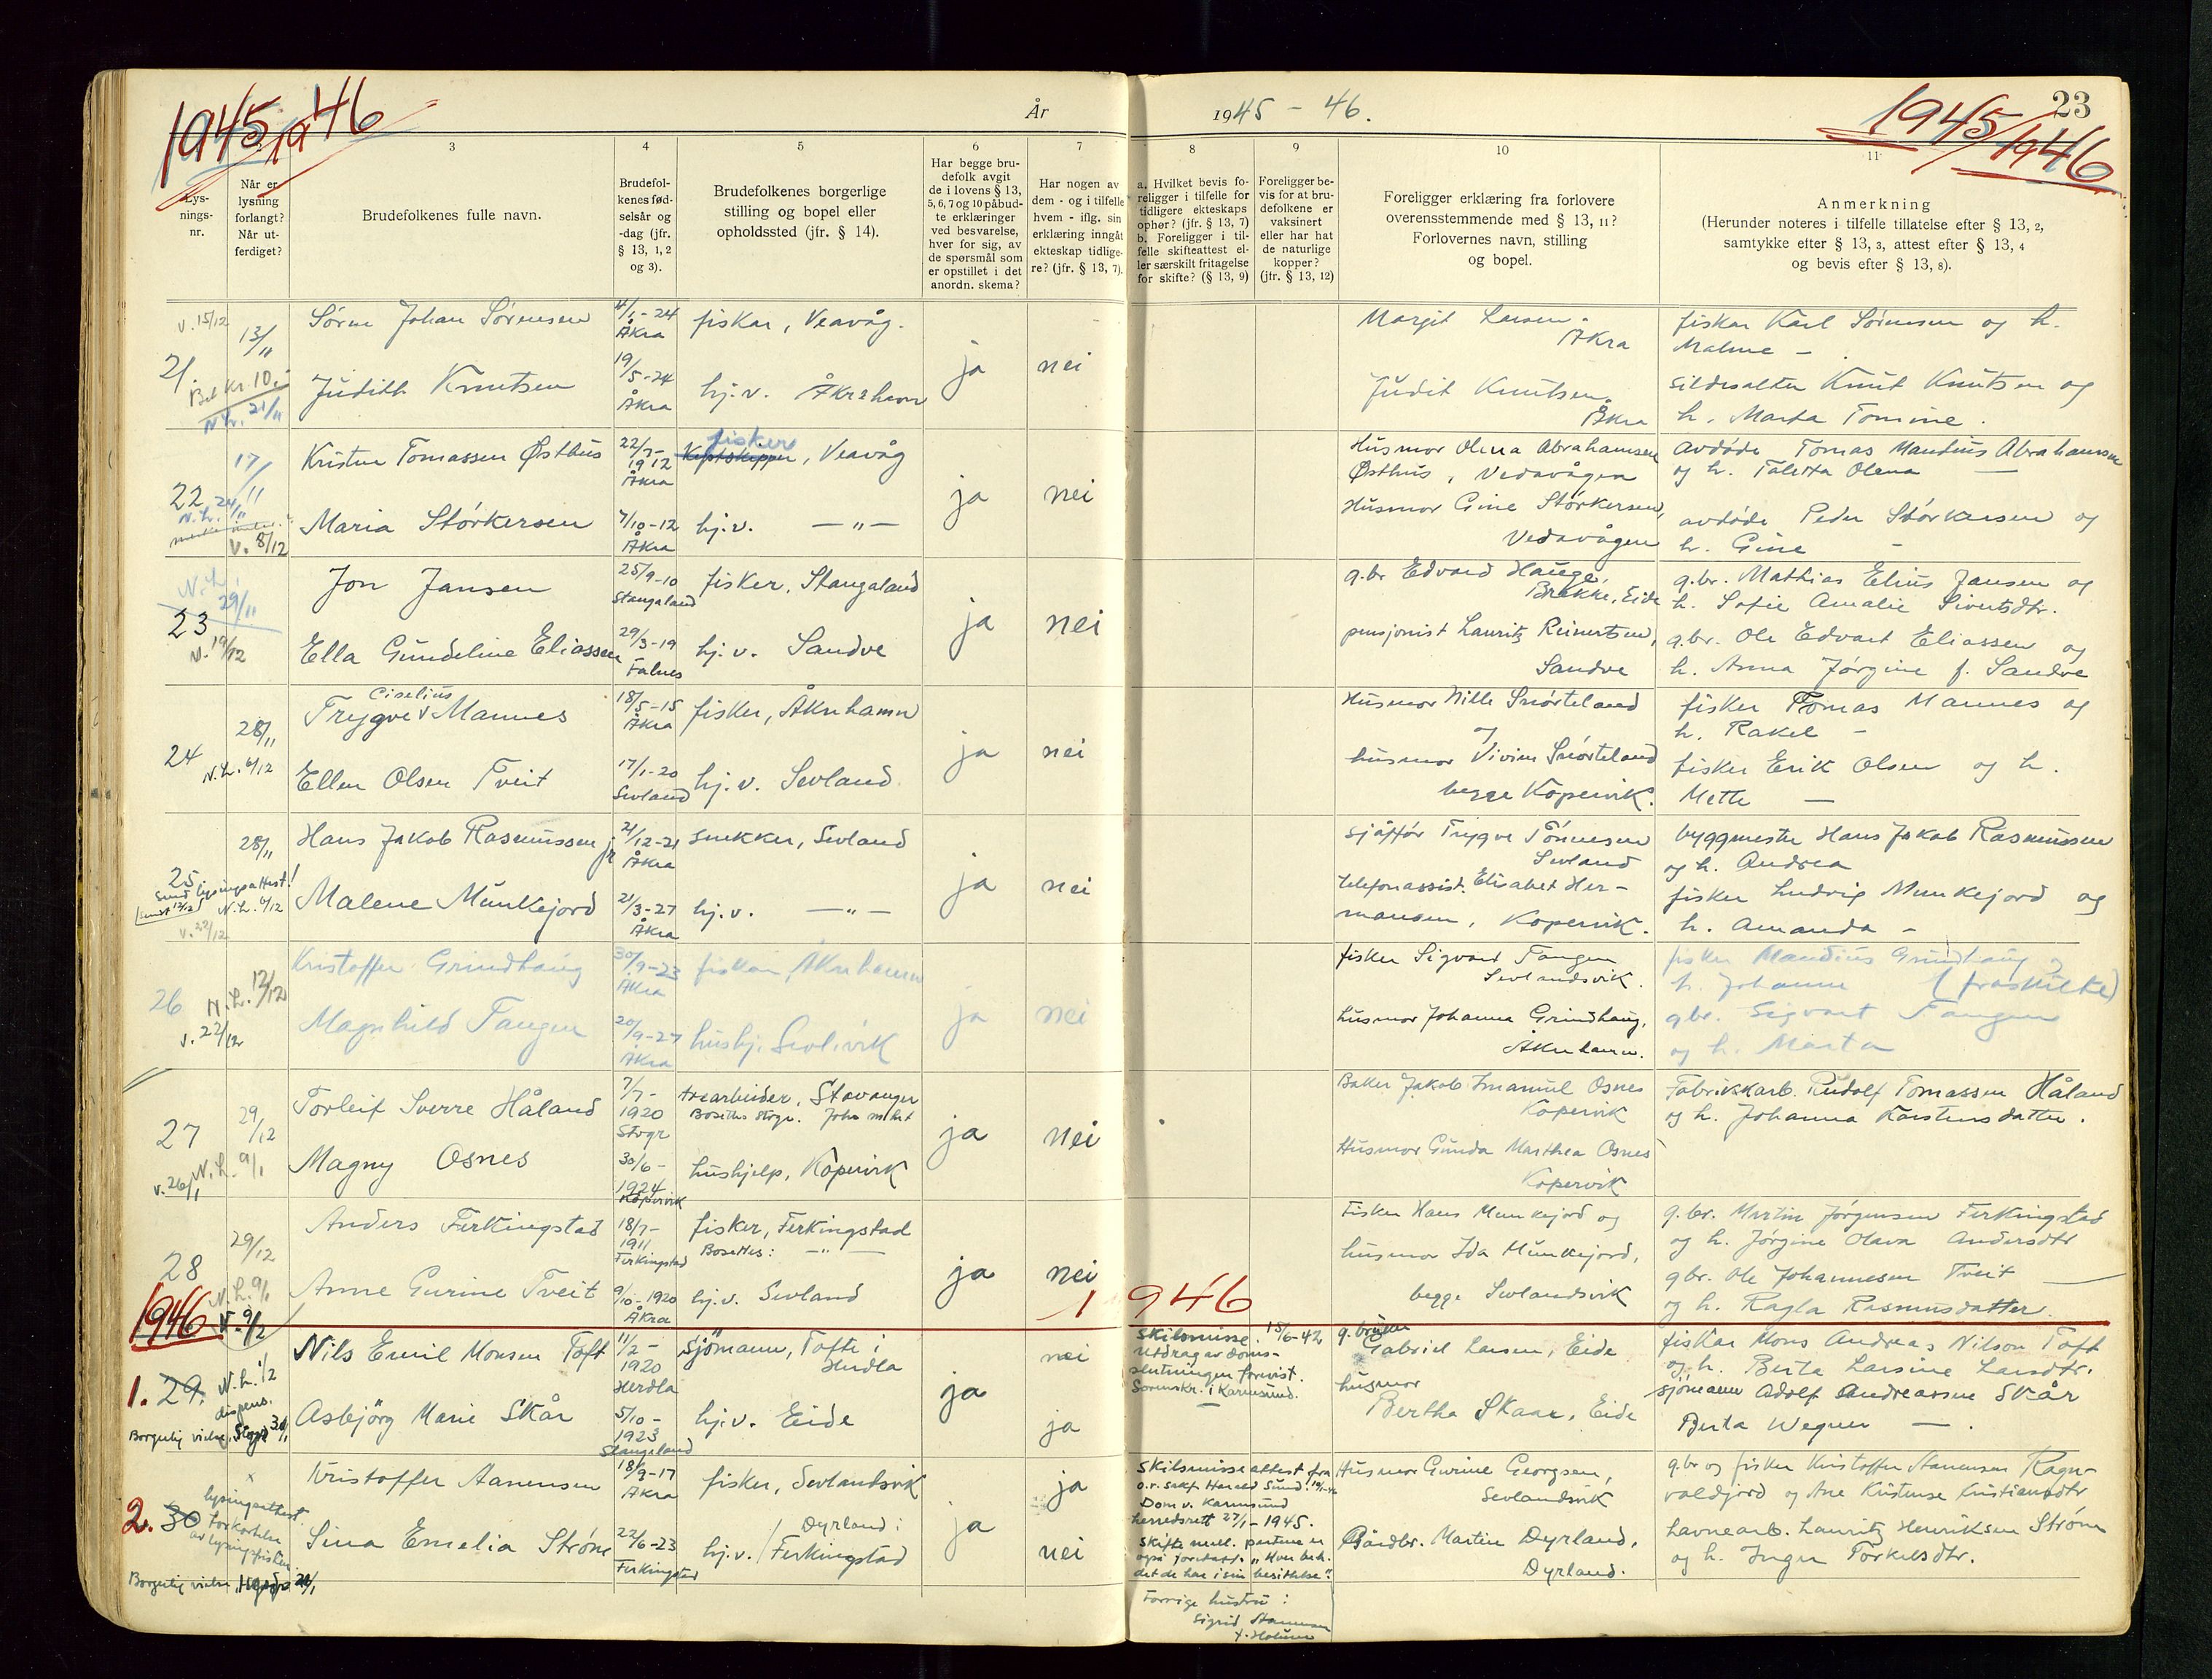 1945 1946
År
1945 - 46.
1945/1946
23
1
3
4
5
6
7
8
9
10
11
Lys-
nings-
nr.
Når er
lysning
forlangt?
Når ut-
ferdiget?
Brudefolkenes fulle navn.
Brudefol-
kenes fød-
selsår og
-dag (jfr.
§ 13, 1, 2
og 3).
Brudefolkenes borgerlige
stilling og bopel eller
opholdssted (jfr. § 14).
Har begge bru-
defolk avgit
de i lovens § 13,
5, 6, 7 og 10 påbud-
te erklæringer
ved besvarelse,
hver for sig, av
de spørsmål som
er opstillet i det
anordn. skema?
Har nogen av
dem - og i tilfelle
hvem - iflg. sin
erklæring inngåt
ekteskap tidlige-
re? (jfr. § 13, 7).
a. Hvilket bevis fo-
religger i tilfelle for
tidligere ekteskaps
ophør? (jfr. § 13, 7)
b. Foreligger i til-
felle skifteattest el-
ler særskilt fritagelse
for skifte? (§ 13, 9)
Foreligger be-
vis for at bru-
defolkene er
vaksinert
eller har hat
de naturlige
kopper?
(jfr. § 13, 12)
Foreligger erklæring fra forlovere
overensstemmende med § 13, 11?
Forlovernes navn, stilling
og bopel.
Anmerkning
(Herunder noteres i tilfelle tillatelse efter § 13, 2,
samtykke efter § 13, 3, attest efter § 13, 4
og bevis efter § 13, 8).
21
v. 15/12
13/11
Bet kr 10,-
N.L. 21/11
Sørm Johan Sørensen
4/1-24
Åkra
fiskar, Veavåg.
Judith Knutsen
19/5-24
Åkra
hj.v. Åkrehavn
ja
nei
Margit Larsen.
Åkra
Judit Knutsen.
Åkra
fiskar Karl Sørensen og h.
Malene -
sildesalter Knut Knutsen og
h. Marta Tomine.
22
17/11
N.L. 24/11
v. 8/12
Kristen Tomassen Østhus
22/7-
1912
Åkra
fisker
Kystskipper, Veavåg
Maria Størkersen
7/10-12
Åkra
hj.v. — " —
ja
nei
Husmor Olena Abrahamsen
Østhus, Vedavågen
Husmor Gine Størkersen,
Vedavågen
Avdøde Tomas Mandius Abrahamsen
og h. Taletta Olena —
avdøde Peder Størkersen og
h. Gine -
23
N.L.
29/11
v. 19/12
Jon Jansen
25/9-10
Stangaland
fisker, Stangaland
Ella Gundeline Eliassen
29/3-19
Falnes
hj.v. Sandve
ja
nei
g.br Edvard Hauge,
Brekke, Eide
pensjonist Lauritz Reinertsen,
Sandve
g.br. Mathias Elius Jansen og
h. Sofie Amalie Sivertsdtr.
g.br. Ole Edvart Eliassen og
h. Anna Jørgine f. Sandve
24
28/11
N.L. 6/12
Ciselius
Trygve v Mannes
18/5-15
Åkra
fisker, Åkrehamn
Ellen Olsen Tveit
17/1-20
Sevland
hj.v. Sevland
ja
nei
Husmor Nille Snørteland
og
husmor Vivien Snørteland
begge Kopervik.
fisker Tomas Mannes og
h. Rakel -
fisker Erik Olsen og h.
Mette —
25
28/11
Send lysingsattest!
(sendt 12/12)
N.L. 6/12
v. 22/12
Hans Jakob Rasmussen jr
21/12-21
Åkra
snekker, Sevland
Malene Munkejord
21/3-27
Åkra
hj.v. — " —
ja
nei
sjåffør Trygve Tønnesen
Sevland
telefonassist. Elisabet Her-
mansen, Kopervik.
byggmester Hans Jakob Rasmussen
og h. Andrea
fisker Ludvig Munkejord og
h. Amanda -
26
N.L. 12/12
v. 22/12
Kristoffer Grindhaug
30/9-23
Åkra
fisker, Åkrehamn
Magnhild Tangen
20/9-27
Åkra
hushj. Sevl.vik
ja
nei
fisker Sigvard Tangen
Sevlandsvik.
husmor Johanna Grindhaug,
Åkrehamn.
fisker Mandius Grindhaug og
h. Johanne (fraskilte)
gbr. Sigvart Tangen
og h. Marta
27
29/12
N.L. 9/1
v. 26/1
Torleif Sverre Håland
7/7-
1920
Stvgr
trearbeider, Stavanger
Magny Osnes
30/6-
1924
Kopervik
hushjelp, Kopervik
ja
nei
Baker Jakob Imanuel Osnes
Kopervik
Husmor Gunda Marthea Osnes
Kopervik
Fabrikkarb. Rudolf Tomassen Håland
og h. Johanna Karstensdatter.
28
29/12
N.L. 9/1
v. 9/2
Anders Ferkingstad
18/7-
1911
Ferkingstad
fisker, Ferkingstad
Bosettes: — " —
Anne Gurine Tveit
9/10-1920
Åkra
hj.v. Sevland
ja
nei
Fisker Hans Munkejord og
husmor Ida Munkejord,
begge Sevlandsvik
g.br. Martin Jørgensen Ferkingstad
og h. Jørgine Olava Andersdtr
gbr. Ole Johannesen Tveit —
og h. Ragla Rasmusdatter.
1946
1946
1. 29.
N.L. 1/2
dispens.
Borgerlig vielse, Stvgr 30/1
Nils Emil Monsen Toft
11/2-
1920
Herdla
Sjömann, Tofte i
Herdla
Asbjörg Marie Skår
5/10-
1923
Stangeland
hj.v. Eide
ja
nei
ja
Skilsmisse. 15/6-42
Utdrag av doms-
slutningen forevist.
Sorenskr. i Karmsund.
g.bruker
Gabriel Larsen, Eide
husmor
Bertha Skaar, Eide
fiskar Mons Andreas Nilson Toft
og h. Berta Larsine Larsdtr.
sjömann Adolf Andreassen Skår
Berta Wegner —.
2. 30
x
lysingsattest.
Forkortelse
av lysingsfristen.
Borgerlig vielse,
Kristoffer Aanensen
18/9-17
Åkra
fisker, Sevlandsvik
Sina Emelia Strøm
22/6-23
Ferkingstad
Dyrland i
hj.v. / Ferkingstad
ja
ja
nei
Skilsmisseattest fra
o.r. sakf. Harald Sund.
Dom v. Karmsund
herredsrett 27/1-1945.
Skifte mell. partene er
også foretatt. "Hver beh.
det de har i sin besittelse".
Forrige hustru:
Sigrid
Husmor Gurine Georgsen,
Sevlandsvik
Gårdbr. Martin Dyrland,
Dyrland.
g.br og fisker Kristoffer Aanensen Ragn-
valdjord og Ane Kristense Kristiansdtr
havnearb. Lauritz Henriksen Strøm
og h. Inger Torkelsdtr.